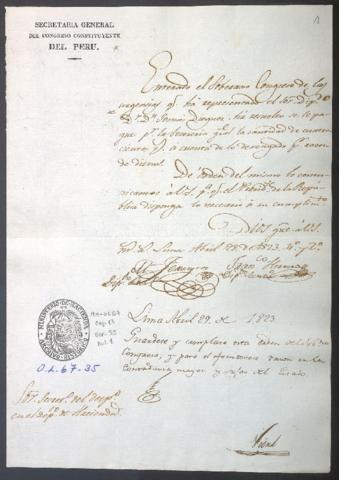 SECRETARIA GENERAL
DEL CONGRESO CONSTITUYENTE
DEL PERU.
1
Enterado el Soberano Congreso de las
urgencias q.e ha representado el Sor. Dip.do
D.r D.n Tomas Dieguez: ha resuelto se le pa-
gue p.r la Tesoreria gral la cantidad de cuatro-
cientos p.s à cuenta de lo devengado p.r razon
de dietas.
De órden del mismo lo comu-
nicamos à US. p.a q.e el Presid.te de la Repu-
blica disponga lo necesario a su cumplim.to
Dios gũe à US.
Lima Abril 28 de 1823. 4.º y 2.º
Lima Abril 29. de 1823
Guardese y cumplase esta orden del
Congreso, y para el efecto tomese razon en la
Contaduria mayor y
O.L. 67-35
Sõr. Secret.º del Desp.º
en el dep.to de Hacienda
Vidal